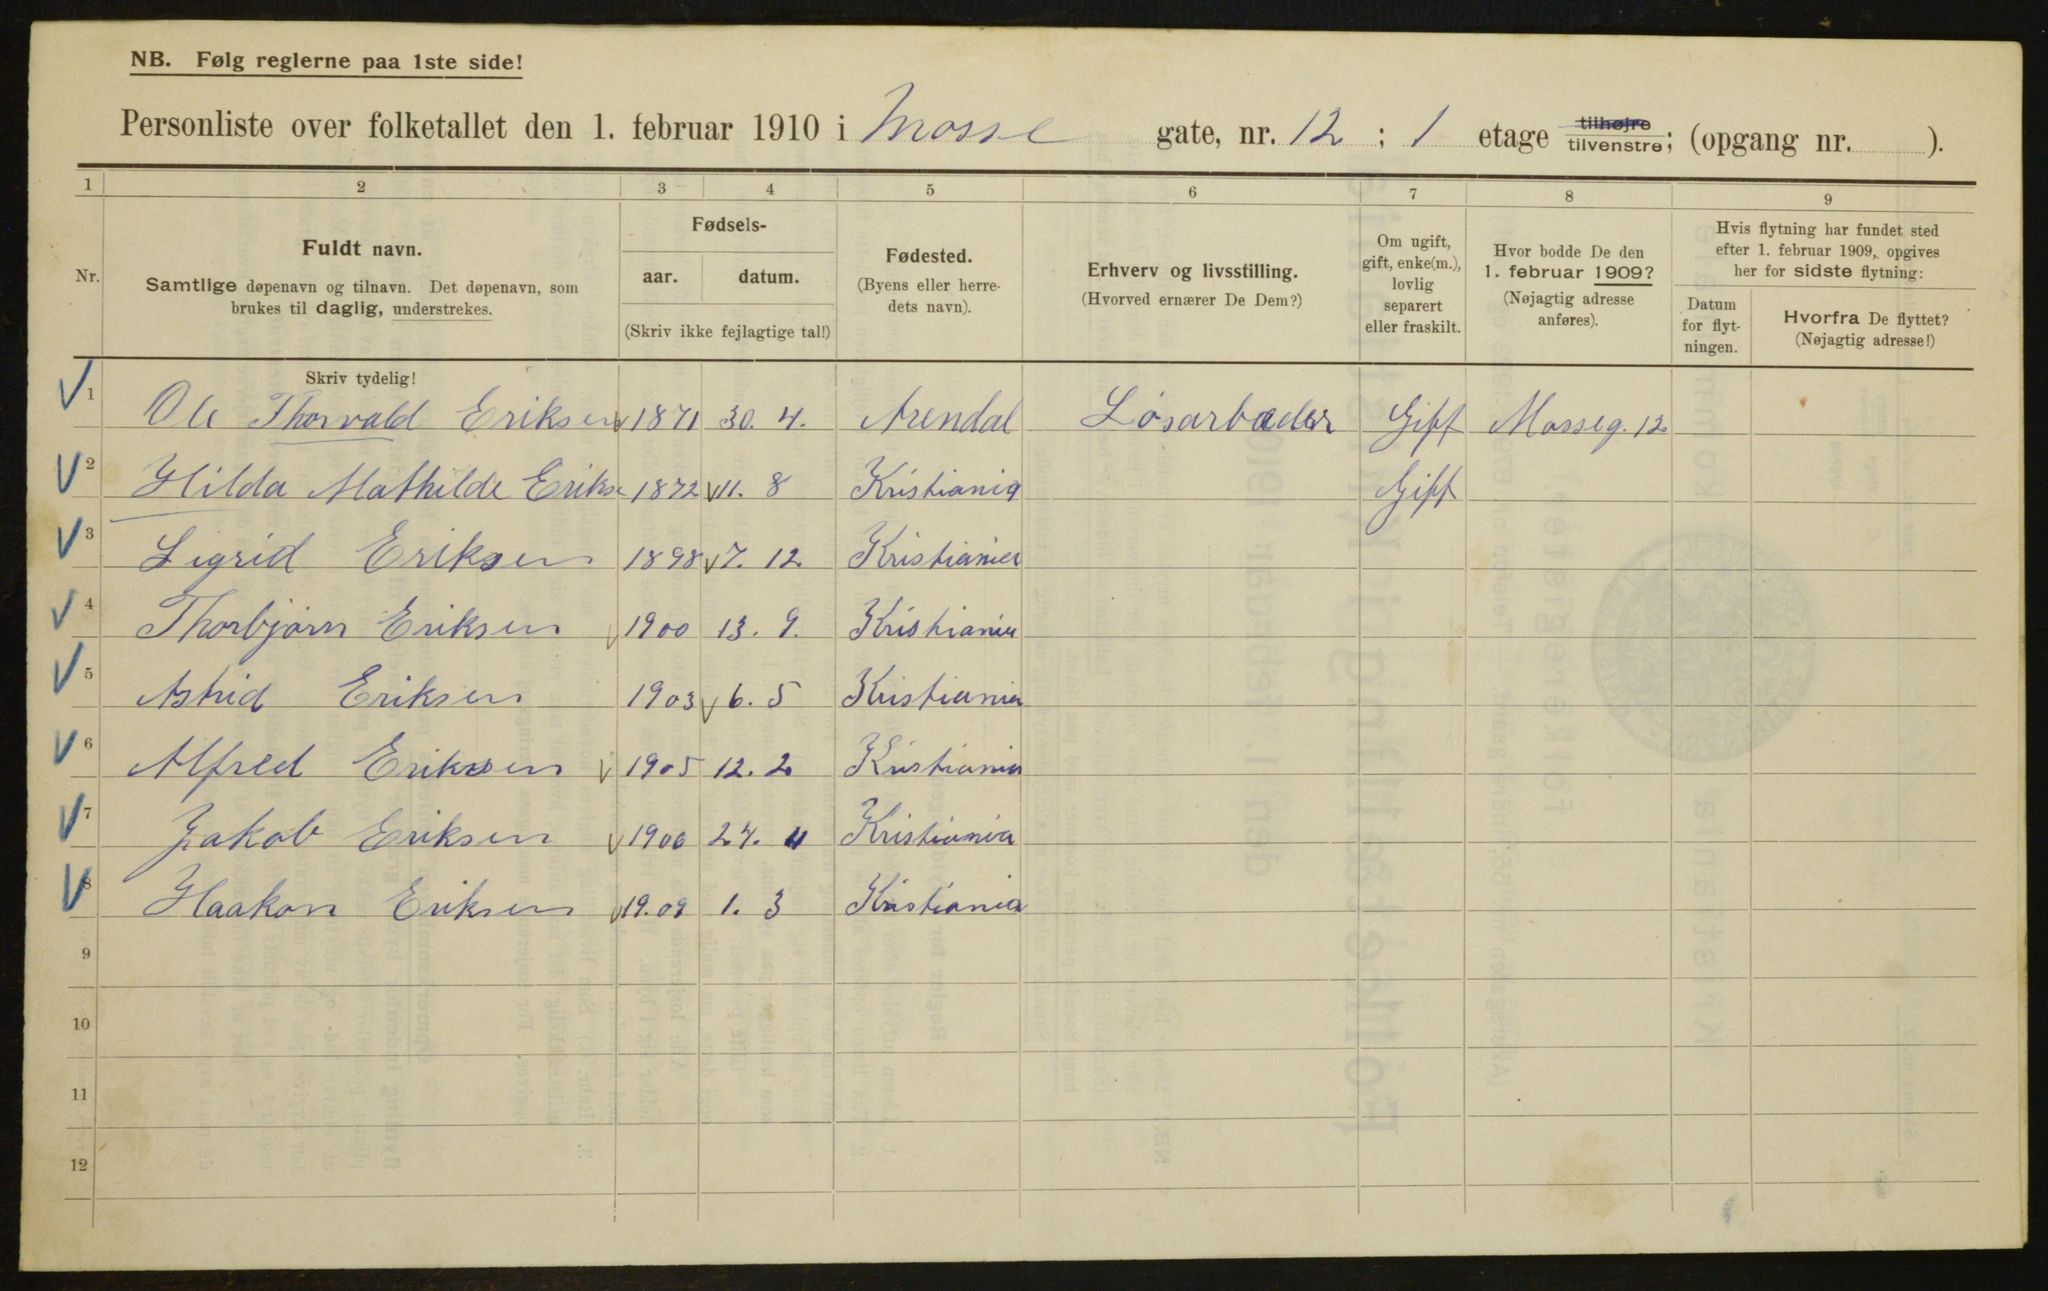 NB. Følg reglerne paa 1ste side!
Personliste over folketallet den 1. februar 1910 i Mosse gate, nr. 12 ; 1 etage tilhøjre tilvenstre; (opgang nr. ).
1 2 3 4 5 6 7 8 9
Nr.
Fuldt navn.
Samtlige døpenavn og tilnavn. Det døpenavn, som
brukes til daglig, understrekes.
Fødsels-
aar. datum.
(Skriv ikke fejlagtige tal!)
Fødested.
(Byens eller herre-
dets navn).
Erhverv og livsstilling.
(Hvorved ernærer De Dem?)
Om ugift,
gift, enke(m.),
lovlig
separert
eller fraskilt.
Hvor bodde De den
1. februar 1909?
(Nøjagtig adresse
anføres).
Hvis flytning har fundet sted
efter 1. februar 1909, opgives
her for sidste flytning:
Datum
for flyt-
ningen.
Hvorfra De flyttet?
(Nøjagtig adresse!)
Skriv tydelig!
1 Ole Thorvald Eriksen 1871 30. 4. Arendal Løsarbeder Gift Mosseg. 12
2 Hilda Mathilde Erikse 1872 11. 8 Kristiania Gift
3 Sigrid Eriksen 1898 7. 12 Kristiania
4 Thorbjørn Eriksen 1900 13. 9. Kristiania
5 Astrid Eriksen 1903 6. 5 Kristiania
6 Alfred Eriksen 1905 12. 2 Kristiania
7 Jakob Eriksen 1906 27. 11 Kristiania
8 Haakon Eriksen 19.09 1. 3 Kristiania
9
10
11
12